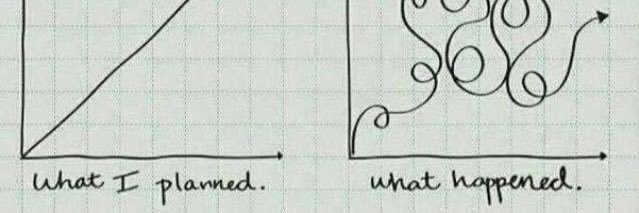 What I planned.
what happened.